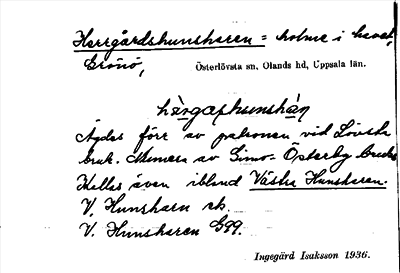 Herrgårdshunsharen = holme i havet,
Gräsö,
Österlövsta sn, Olands hd, Uppsala län.
hærgaṣhunshán
Ägdes förr av patronen vid Lövsta
bruk. Numera av Gimo-Österby bruk.
Kallas även ibland Västra Hunsharen.
V. Hunsharn ek.
V. Hunsharen G99.
Ingegärd Isaksson 1936.